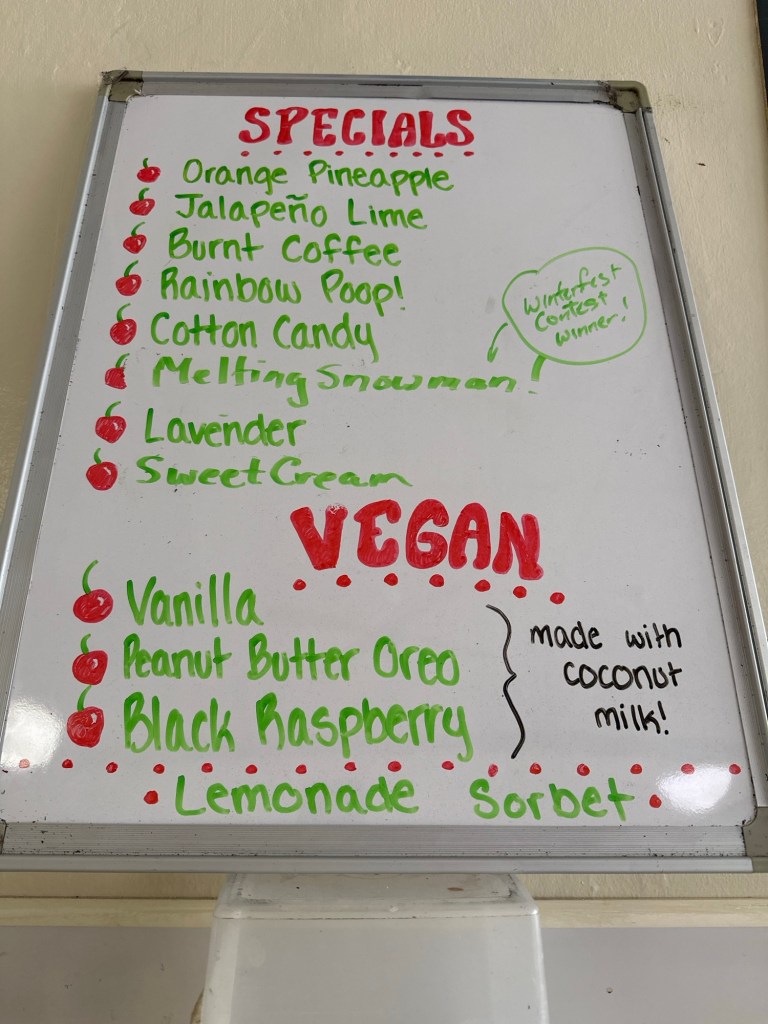 SPECIALS
Orange Pineapple
Jalapeño Lime
Burnt Coffee
Rainbow Poop!
Cotton Candy
Melting Snowman!
Winterfest
Contest
Winner!
Lavender
Sweet Cream
VEGAN
Vanilla
Peanut Butter Oreo
Black Raspberry
made with
coconut
milk!
Lemonade Sorbet